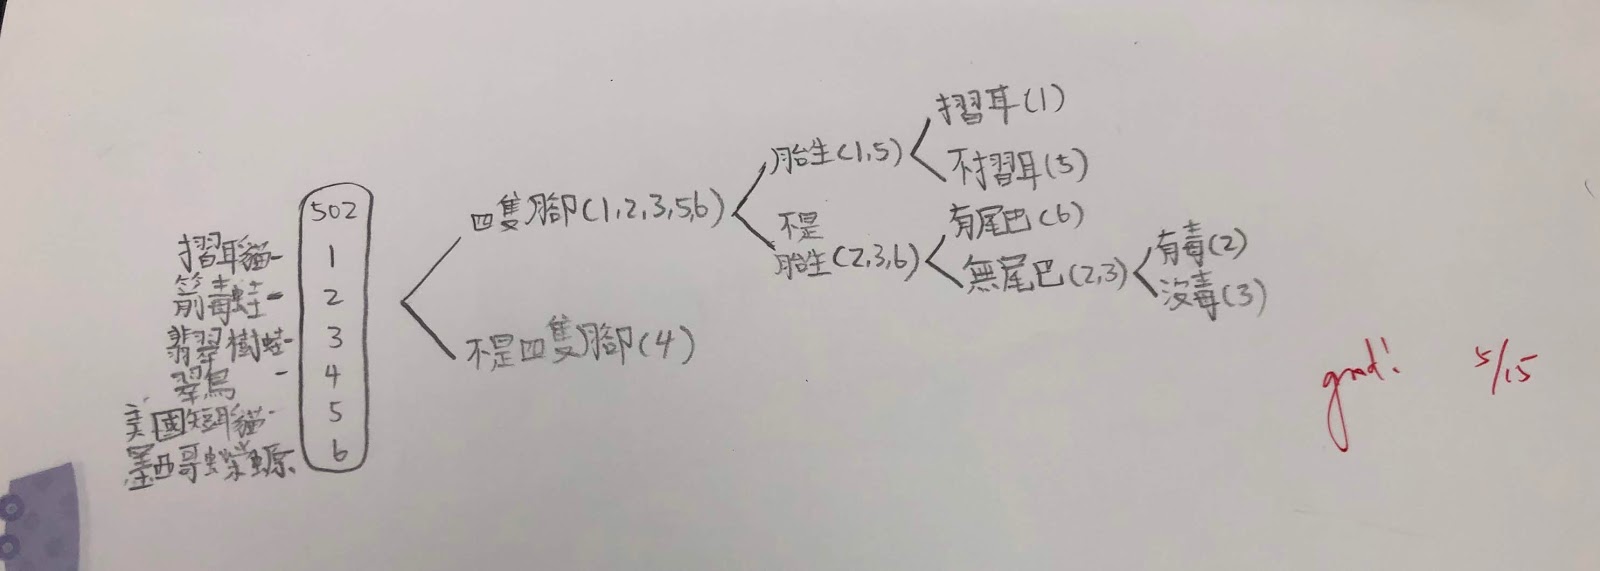 502
摺耳貓- 1
箭毒蛙- 2
翡翠樹蛙- 3
翠鳥 - 4
美國短耳貓- 5
墨西哥蠑螈. 6
四隻腳(1,2,3,5,6)
不是四隻腳(4)
胎生(1,5)
不是
胎生(2,3,6)
摺耳(1)
不摺耳(5)
有尾巴(6)
無尾巴(2,3)
有毒(2)
沒毒(3)
good! 5/15